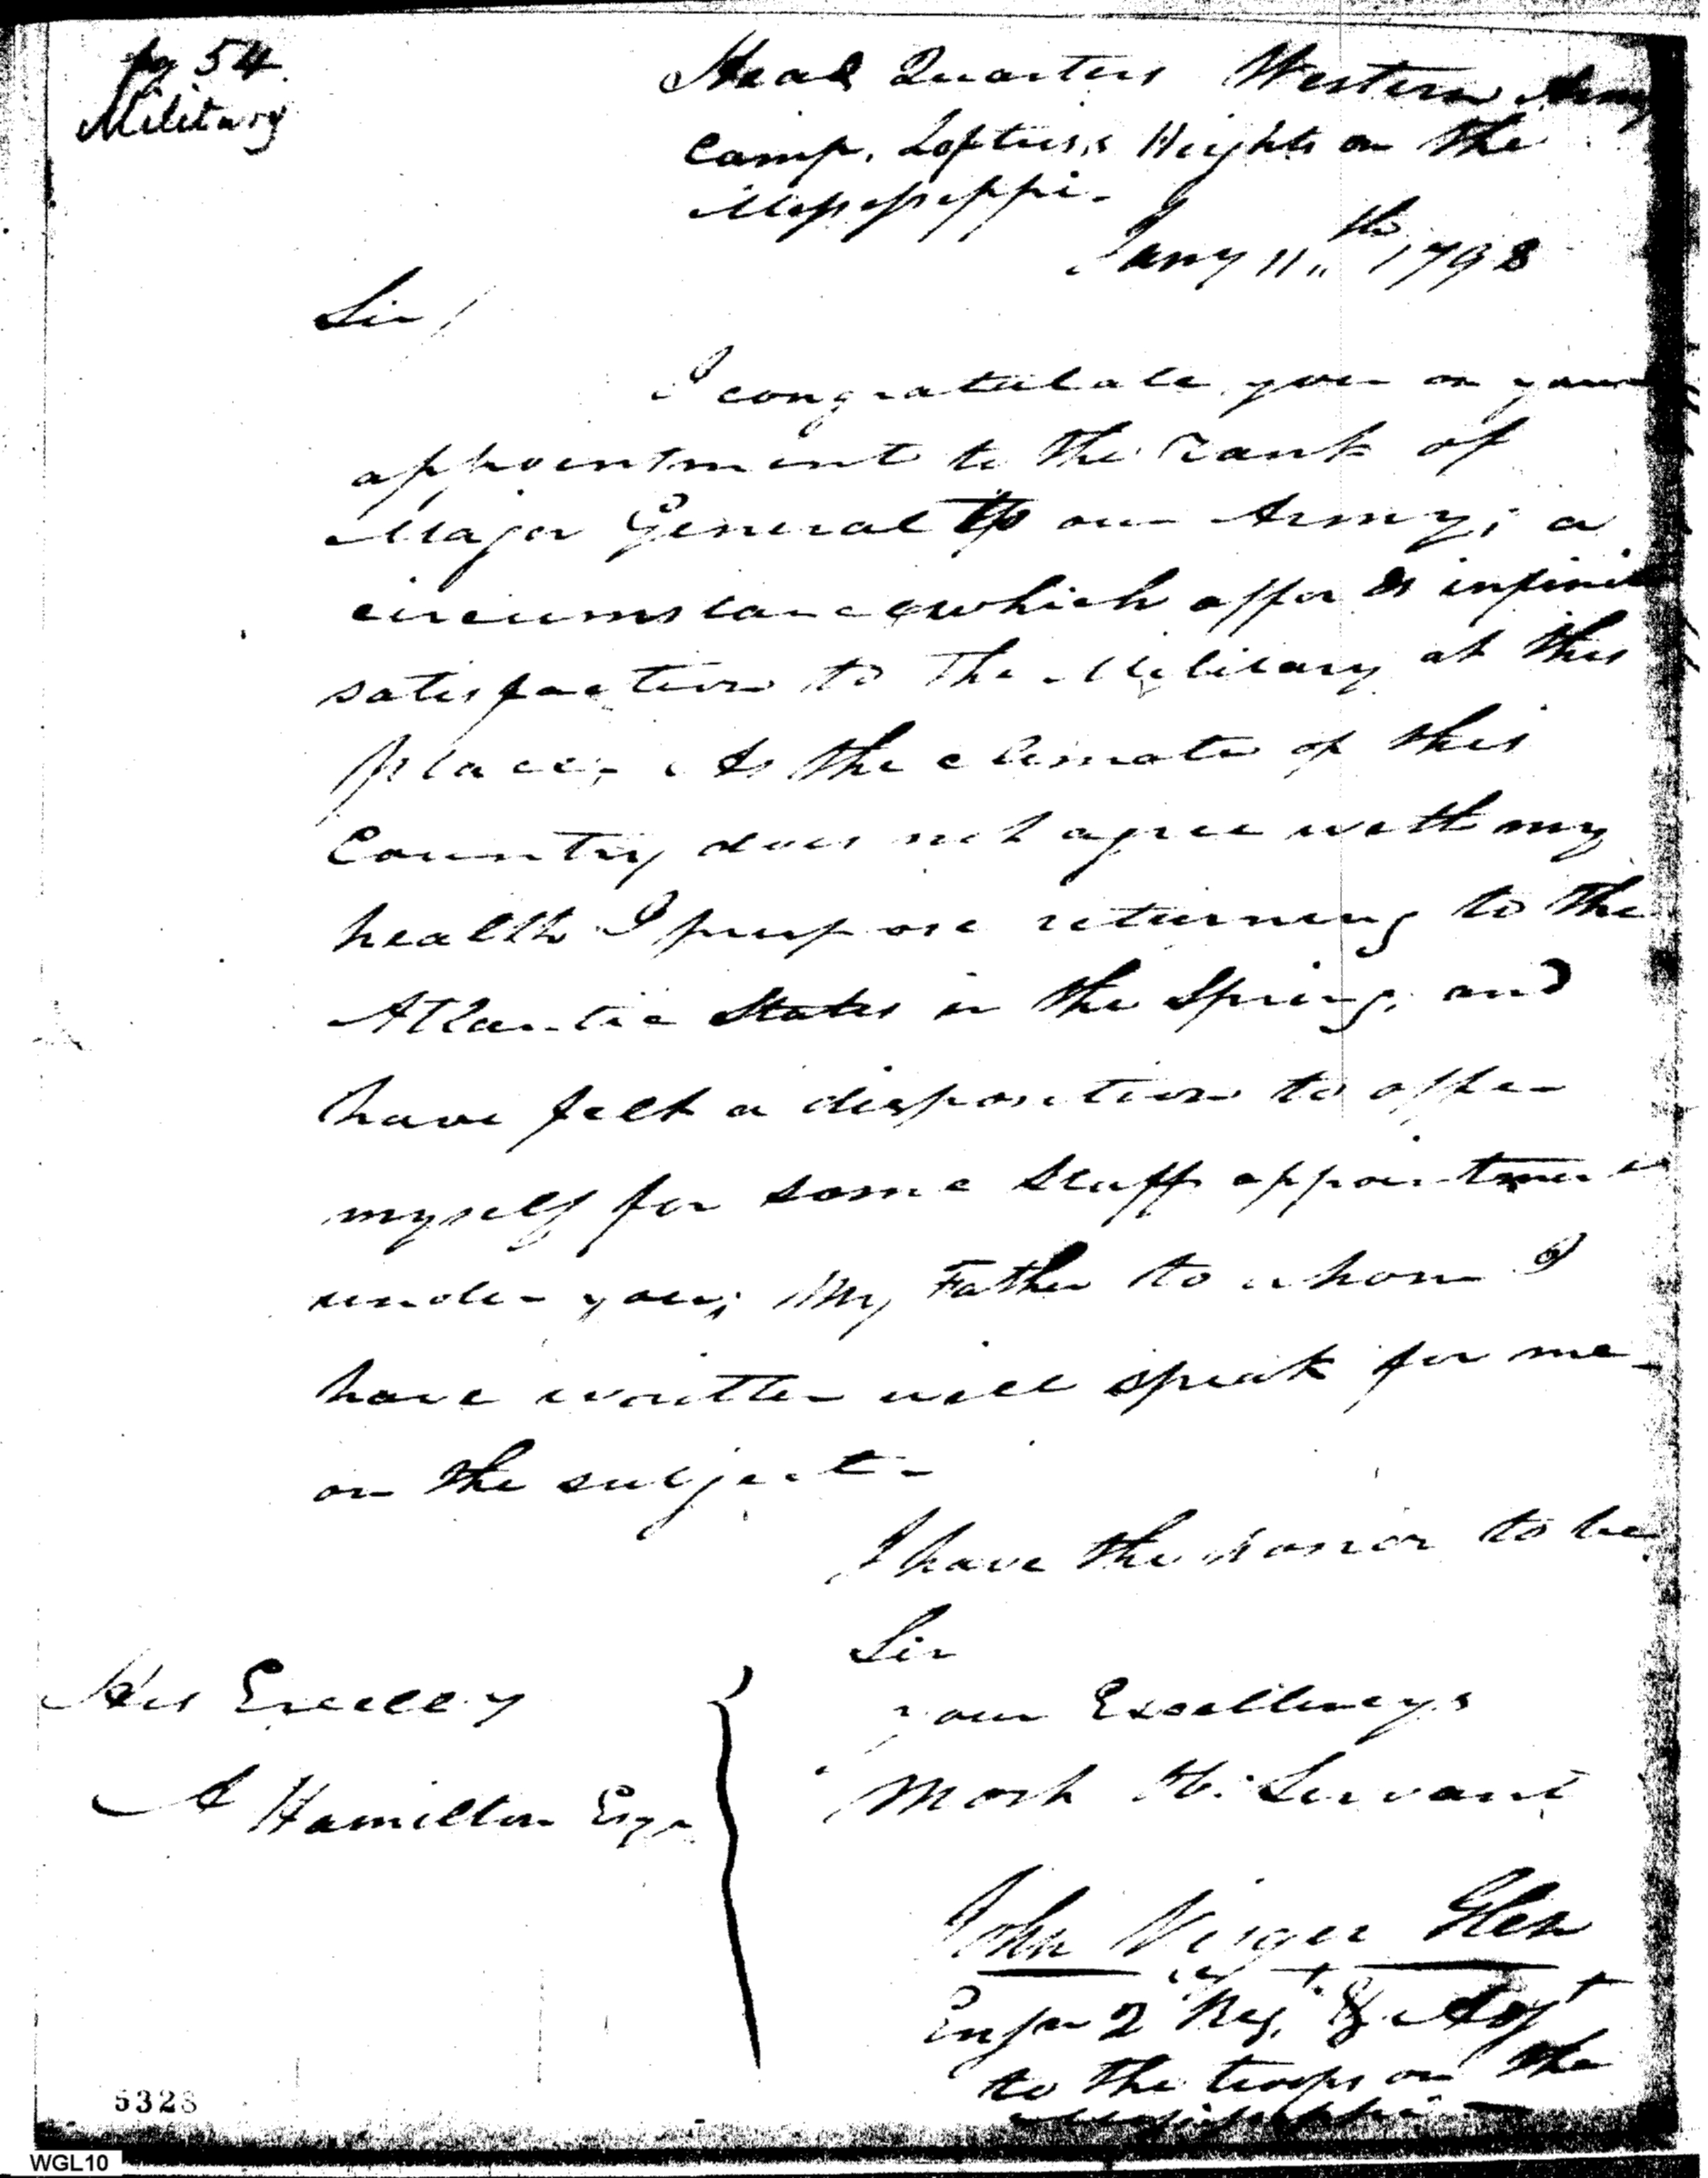 pg 54
Military
Head Quarters Western Army
Camp, Loftus's Heights on the
Mississippi.
Jany 11th 1798
Sir /
I congratulate you on your
appointment to the rank of
Major General to our Army; a
circumstance which affords infinite
satisfaction to the Military at this
place; As the climate of this
Country does not agree with my
health I purpose returning to the
Atlantic States in the Spring, and
have felt a disposition to offer
myself for some staff appointment
under you; My Father to whom I
have written will speak for me
on the subject -
I have the honor to be
Sir
your Excellency's
Most H. Servant
John Visger Glen
Ensn 2d Regt & Adjt
to the troops on the
Mississippi -
His Excelly
A Hamilton Esqr
5328
WGL10